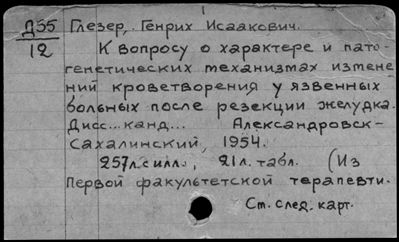 Д55 Глезер, Генрих Исаакович.
12 К вопросу о характере и пато-
генетических механизмах измене
ний кроветворения у язвенных
больных после резекции желудка.
Дисс... канд... Александровск-
Сахалинский, 1954.
257л. с илл., 21л. табл. (Из
Первой факультетской терапевти.
См. след. карт.